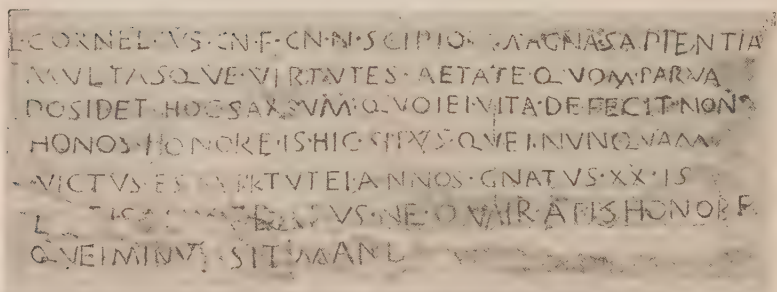 L·CORNEL·VS·CN·F·CN·N·SCIPIO· MAGNASAPIENTIA
MVLTASQVE·VIRTVTES·AETATEQVOM·PARVA
POSIDET·HOCSAXSVM·QVOIEI·VITA·DEFECIT·NON
HONOS·HONORE·IS·HIC·SITVS·QVEI·NVNQVAM
VICTVS·ES VIRTVTEI·ANNOS·GNATVS·XX·IS
L VS·NE·QVAIRATISHONORE
QVEIMINVS·SIT·MAND